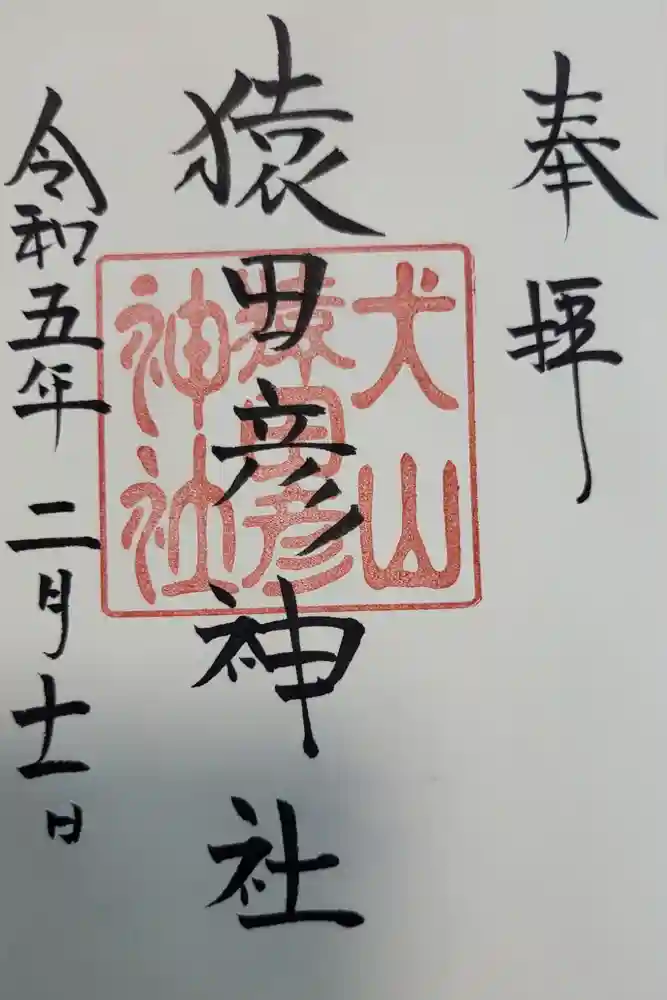 奉拝
犬山
猿田彦
神社
猿田彦神社
令和五年二月十一日